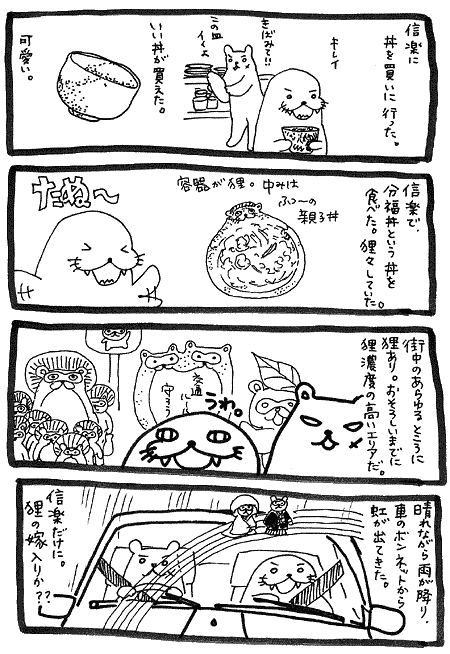 信楽に
丼を買いに行った。
キレイ
きばみて!!
この皿
いくよ
いい丼が買えた。
可愛い。
信楽で
分福丼という丼を
食べた。狸々していた。
容器が狸。中みは
ふつ〜の
親子丼
たぬ〜
街中のあらゆるところに
狸あり。おそろしいまでに
狸濃度の高いエリアだ。
うわ。
交通
ルール
守ろう
晴れながら雨が降り、
車のボンネットから
虹が出てきた。
信楽だけに。
狸の嫁入りか??